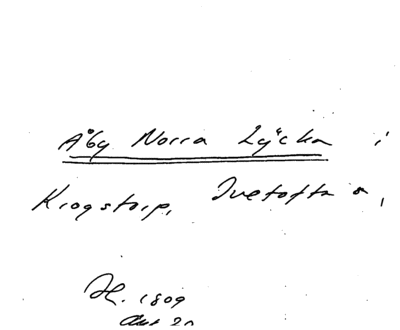 Åby Norra Lycka i
Krogstorp, Ivetofta s,
H. 1809
Akt 20